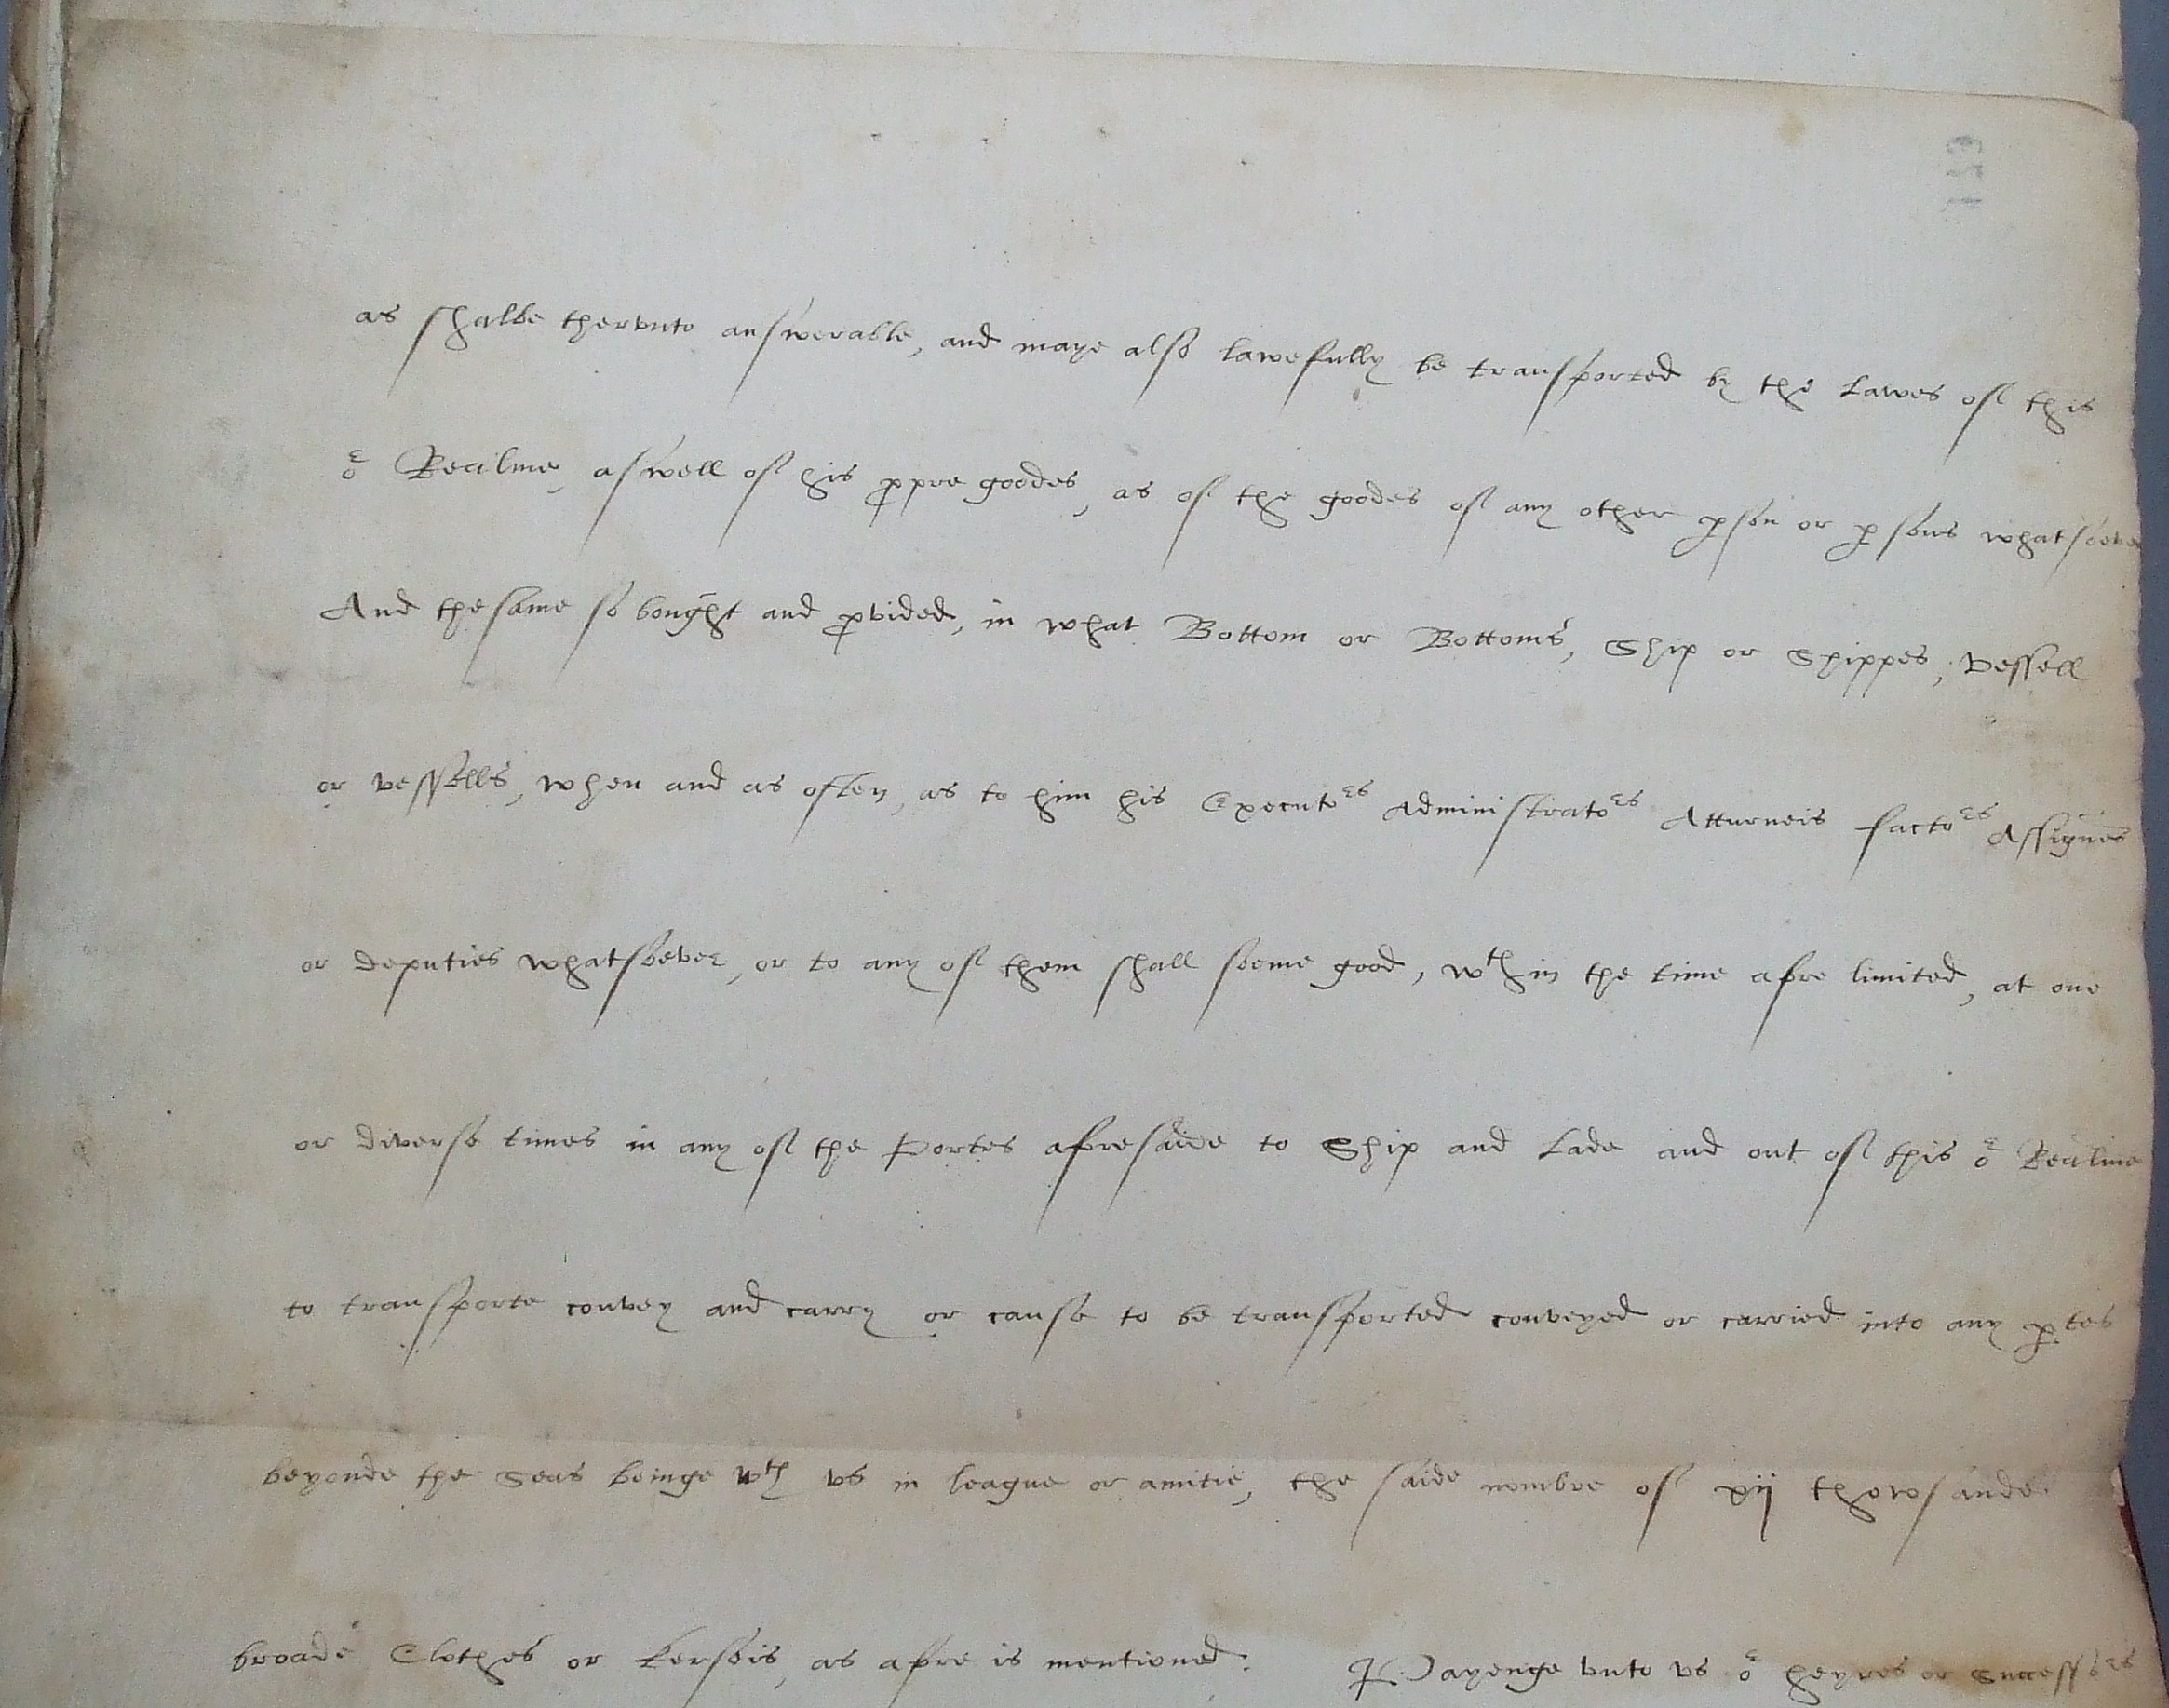 as shalbe thervnto answerable, and maye also lawefully be transported by the Lawes of this
oʳ Realme, aswell of his ꝓpre goodes, as of the goodes of any other ꝑson or ꝑsons whatsoever
And thesame so bought and ꝓvided, in what Bottom or Bottoms, Ship or Shippes, Vessell
or vessells, when and as often, as to him his Executoʳˢ Administratoʳˢ Atturneis factoʳˢ Assignes
or deputies whatsoever, or to any of them shall seeme good, wᵗʰin the time afore limited, at one
or diverse times in any of the Portes aforesaide to Ship and Lade and out of this oʳ Realme
to transporte convey and carry or cause to be transported conveyed or carried into any ꝑtes
beyonde the Seas beinge wᵗʰ vs in league or amitie, the saide nombre of xij thowsande
broade Clothes or Kerseis, as afore is mentioned. Payenge vnto vs oʳ heyres or Successoʳˢ